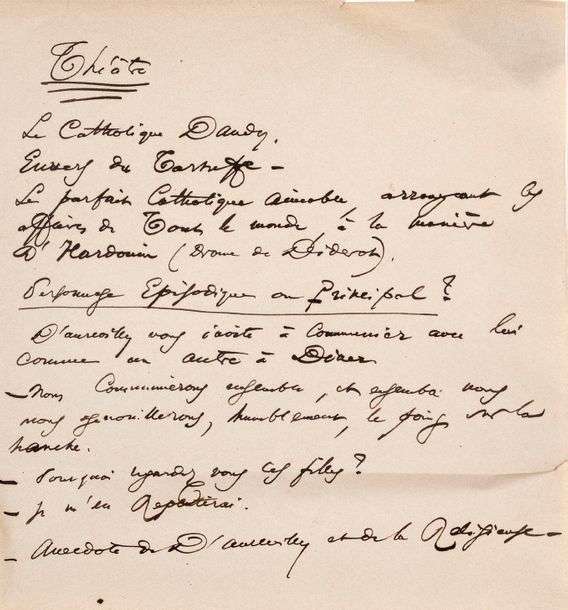 Théâtre
Le Catholique Dandy.
Envers du Tartuffe –
Le parfait Catholique aimable, arrangeant les
affaires de Tout le monde, à la manière
d'Hardouin (Drome de Diderot).
Personnage Episodique ou Principal ?
D'aurevilly vous invite à Communier avec lui
comme un autre à Diner
– Nous Communierons ensemble, et ensemble nous
nous agenouillerons, humblement, le poing sur la
hanche.
– Pourquoi regardez vous ces filles ?
– Je m'en Repentirai.
– Anecdote de D'aurevilly et de la Religieuse –